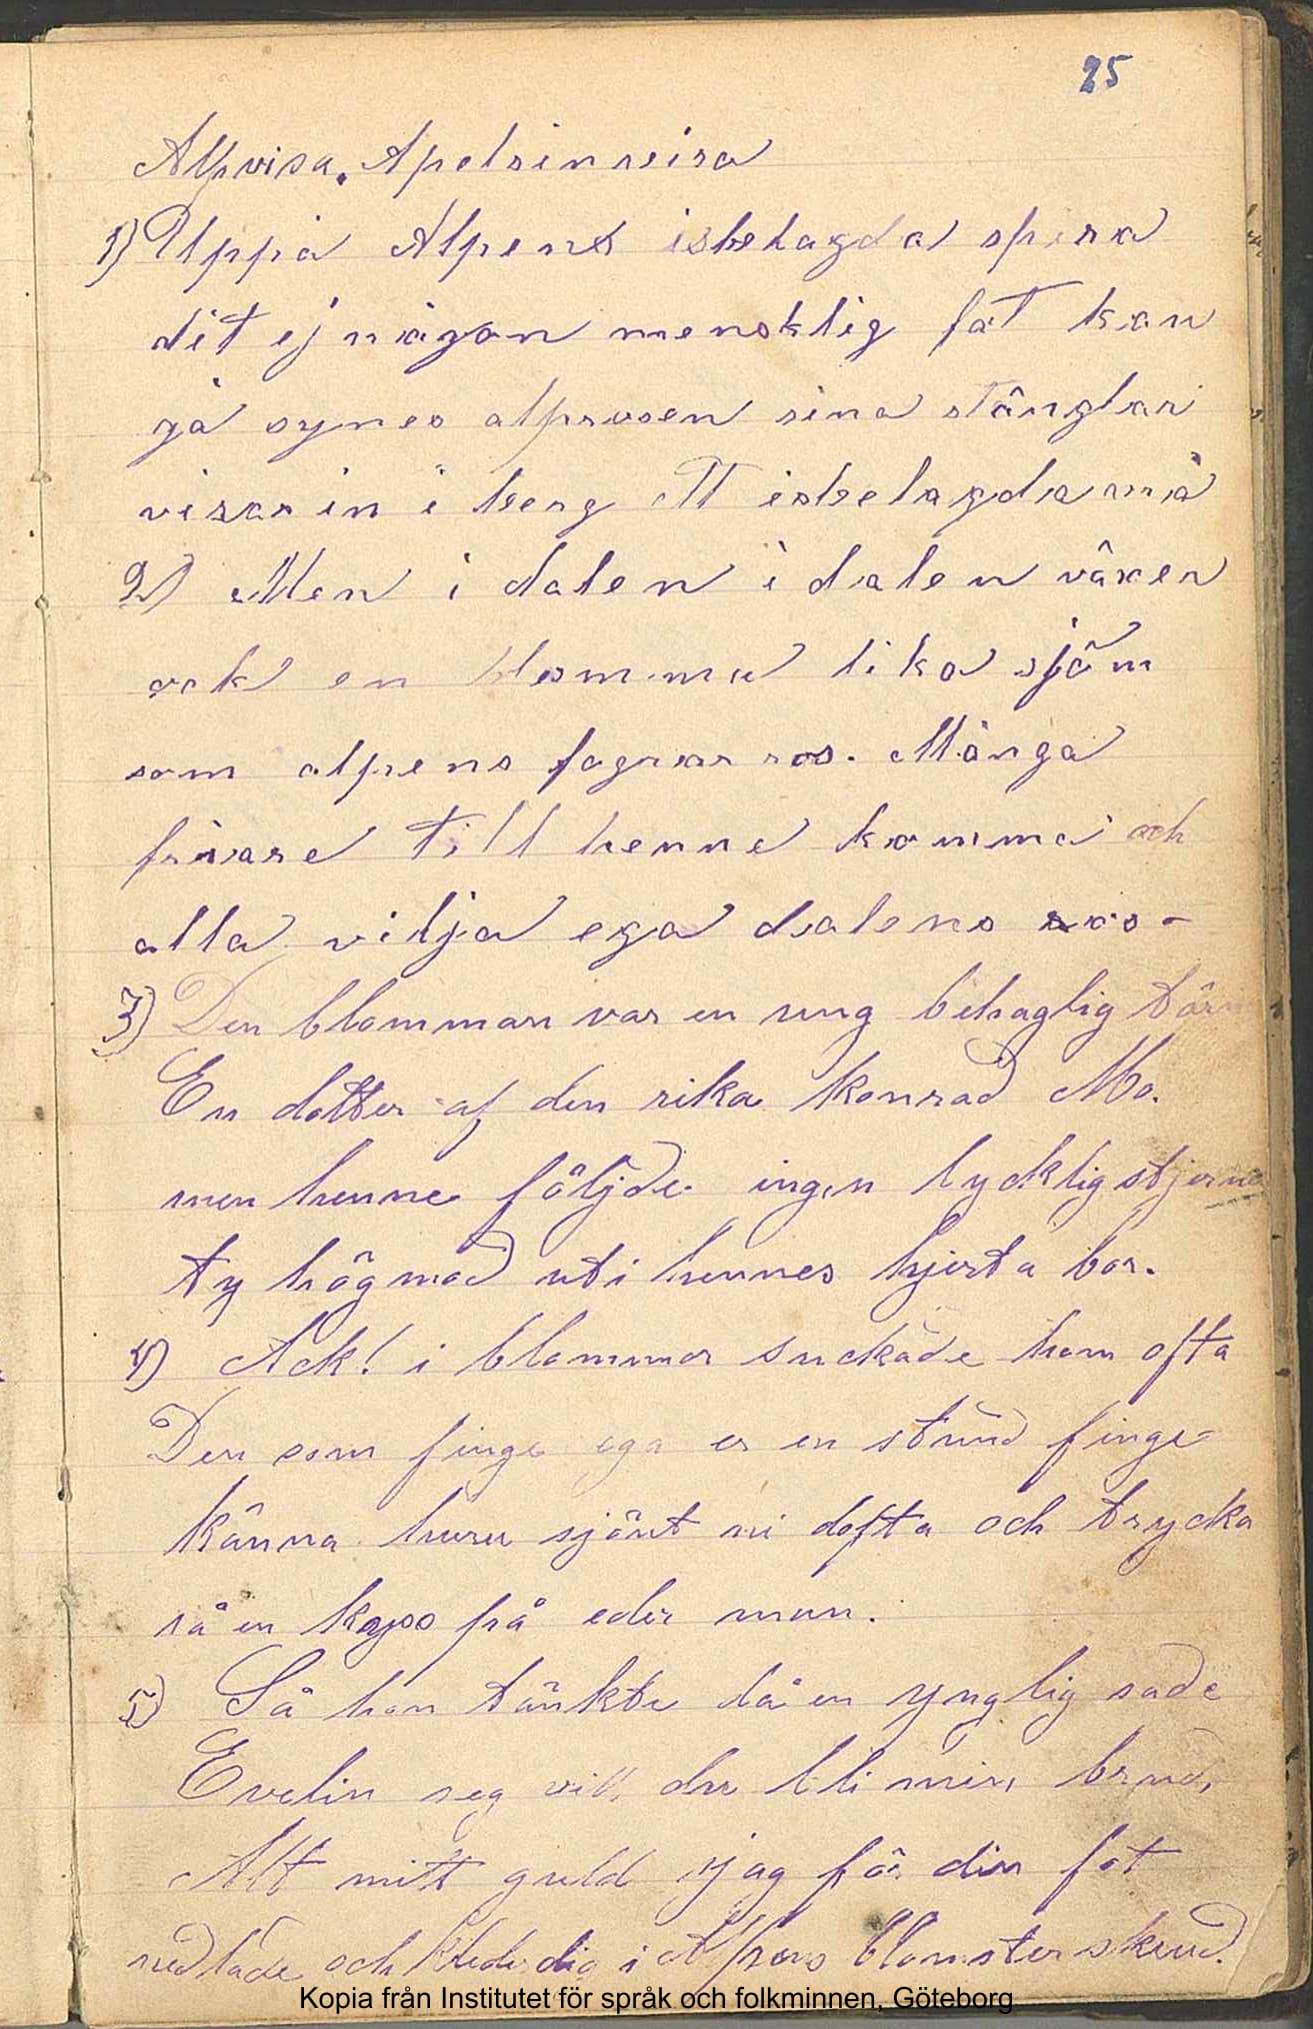 25
Alpvisa. Apelsinvisa
1) Uppå Alpens isbelagda spira
dit ej någon mensklig fot kan
gå synes alprosen sina stänglar
virar in i berg ett isbelagda må
2) Men i dalen i dalen växer
ock en blomma lika sjön
som alpens fagrar ros. Många
friare till henne komma och
alla vilja ega dalens ros-
3) Den blomman var en ung behaglig tärn
En dotter af den rika Konrad Mo.
men henne följde ingen lycklig stjerna
ty högmod uti hennes hjerta bor.
4) Ack! i blommor suckade han ofta
Den som finge ega er en stund finge
känna huru sjönt ni dofta och trycka
så en kyss på eder mun.
5) Så han tänkte då en ynglig sade
Evelin seg vill du bli min brud,
Alt mitt guld jag för din fot
nedlade och kläde dig i Alpens blomster skrud.
Kopia från Institutet för språk och folkminnen, Göteborg